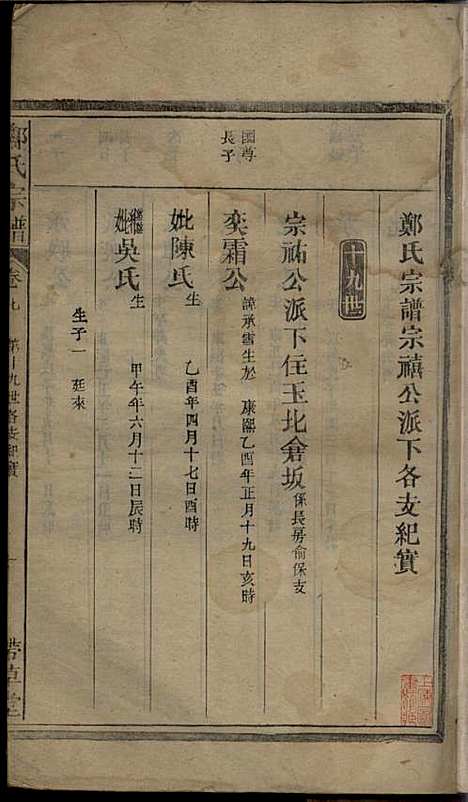 鄭氏宗譜宗禧公派下各支紀實
十九世
宗祐公派下住玉北倉坂係長房俞保支
國尊長子
奕霜公 諱承雪生於 康熙乙酉年正月十九日亥時
妣陳氏 生 乙酉年四月十七日酉時
繼妣吳氏 生 甲午年六月十二日辰時
生子一 廷來
鄭氏宗譜 卷九 第十九世各支紀實